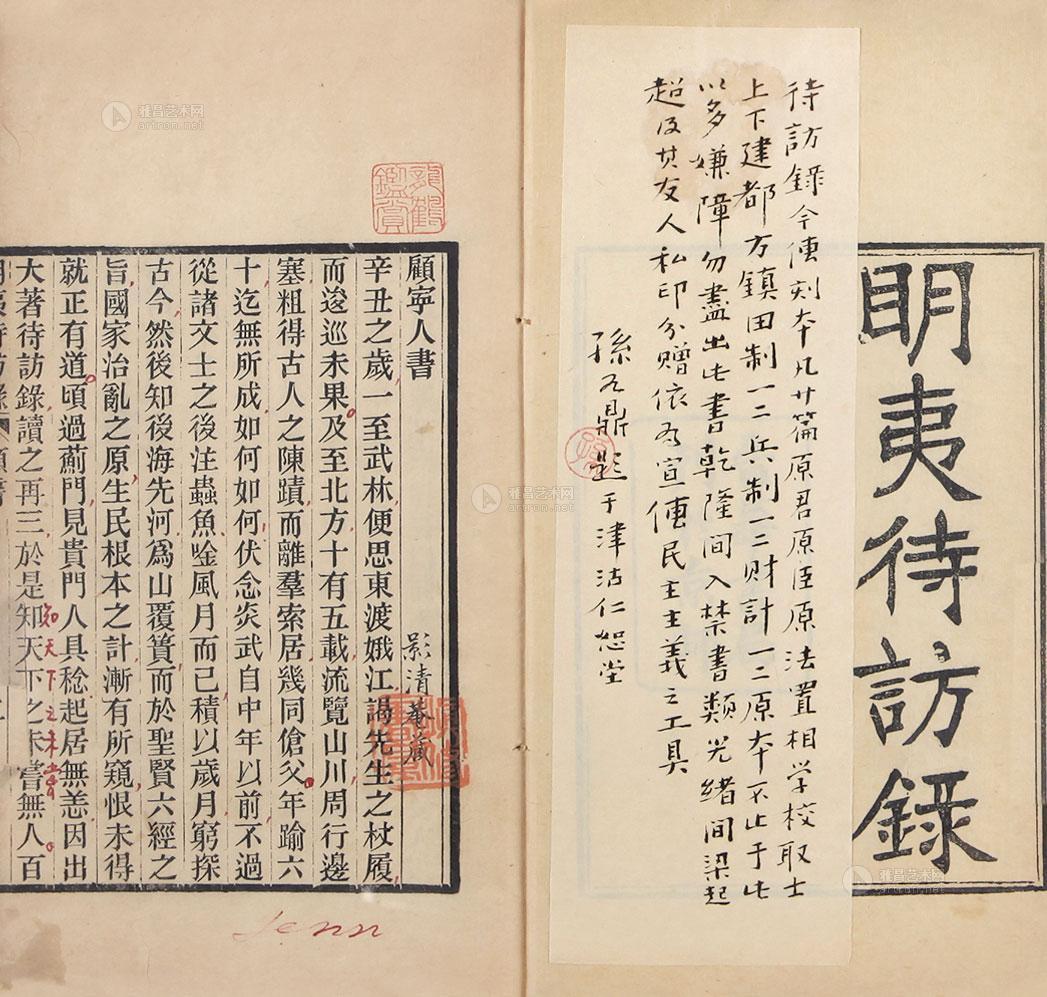 明夷待訪錄
待訪錄今傳刻本凡廿篇原君原臣原法置相学校取士
上下建都方鎮田制一二兵制一二财計一二原本不止于此
以多嫌障勿盡出此書乾隆間入禁書類光緒間梁起
超及其友人私印分贈依为宣傳民主主義之工具
孫九鼎題于津沽仁恕堂
龍鶴鑑賞
顧寧人書
影清菴藏
辛丑之歲一至武林便思東渡娥江謁先生之杖履
而逡巡未果及至北方十有五載流覽山川周行邊
塞粗得古人之陳蹟而離羣索居幾同傖父年踰六
十迄無所成如何如何伏念炎武自中年以前不過
從諸文士之後注蟲魚唫風月而已積以歲月窮探
古今然後知後海先河爲山覆簣而於聖賢六經之
旨國家治亂之原生民根本之計漸有所窺恨未得
就正有道頃過薊門見貴門人具稔起居無恙因出
大著待訪錄讀之再三於是知天下之未嘗無人百
知天下之未嘗
雅昌艺术网
artron.net
雅昌艺术网
artron.net
雅昌艺术网
artron.net